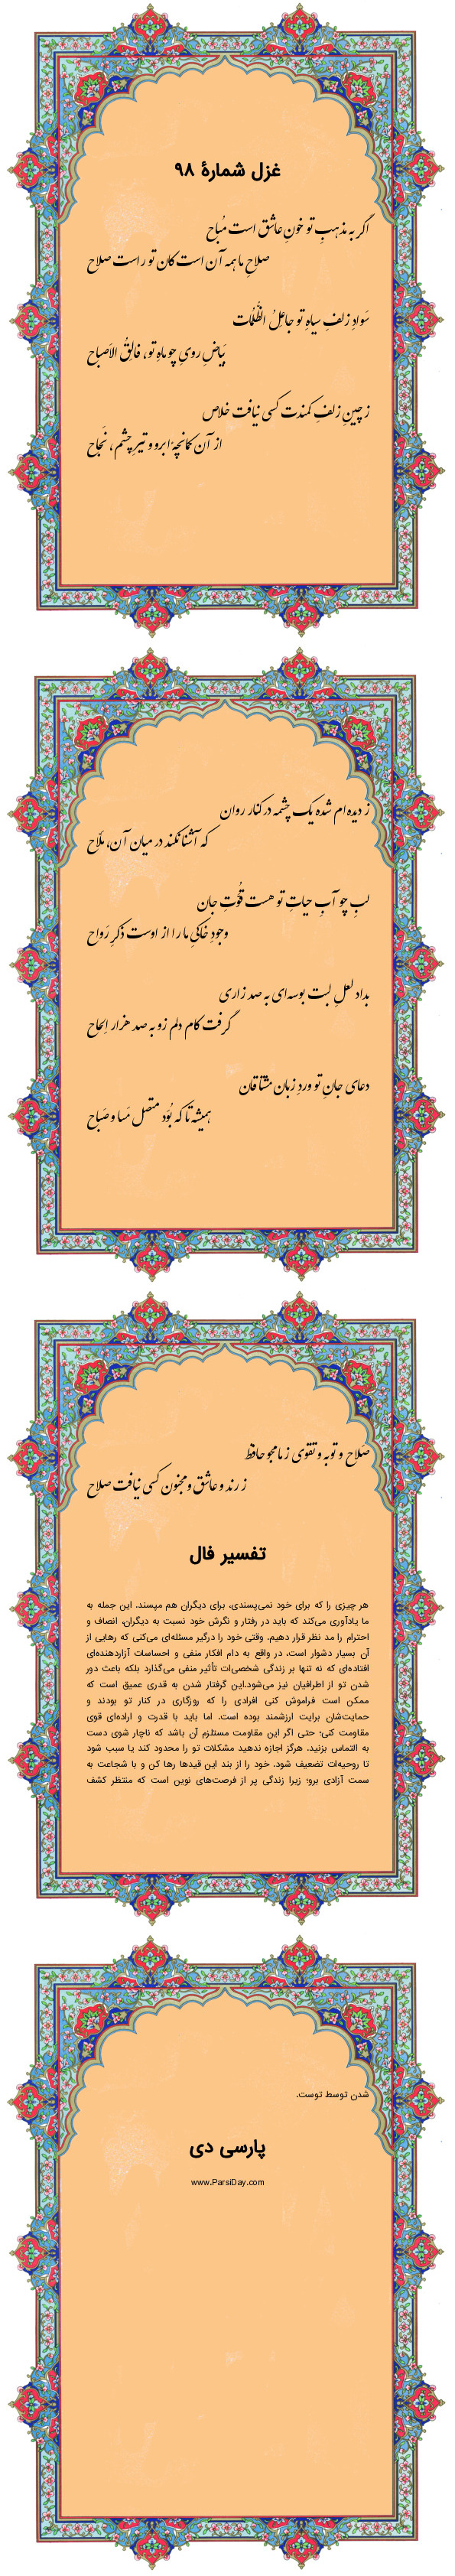 غزل شمارهٔ ۹۸
اگر به مذهبِ تو خونِ عاشق است مُباح
صلاحِ ما همه آن است کان تو راست صلاح
سَوادِ زلفِ سیاهِ تو جاعِلُ الظُّلُمات
بَیاضِ رویِ چو ماهِ تو، فالِقُ الاَصباح
ز چینِ زلفِ کمندت کسی نیافت خلاص
از آن کمانچهٔ ابرو و تیرِ چشم، نَجاح
ز دیده‌ام شده یک چشمه در کنار روان
که آشنا نکند در میان آن، مَلّاح
لبِ چو آبِ حیاتِ تو هست قُوَّتِ جان
وجودِ خاکیِ ما را از اوست ذکرِ رَواح
بداد لعلِ لبت بوسه‌ای به صد زاری
گرفت کام دلم زو به صد هزار اِلحاح
دعای جانِ تو وردِ زبان مشتاقان
همیشه تا که بُوَد متصل مَسا و صَباح
صلاح و توبه و تقوی ز ما مجو حافظ
ز رند و عاشق و مجنون کسی نیافت صلاح
تفسیر فال
هر چیزی را که برای خود نمی‌پسندی، برای دیگران هم مپسند. این جمله به
ما یادآوری می‌کند که باید در رفتار و نگرش خود نسبت به دیگران، انصاف و
احترام را مد نظر قرار دهیم. وقتی خود را درگیر مسئله‌ای می‌کنی که رهایی از
آن بسیار دشوار است، در واقع به دام افکار منفی و احساسات آزاردهنده‌ای
افتاده‌ای که نه تنها بر زندگی شخصی‌ات تأثیر منفی می‌گذارد بلکه باعث دور
شدن تو از اطرافیان نیز می‌شود.این گرفتار شدن به قدری عمیق است که
ممکن است فراموش کنی افرادی را که روزگاری در کنار تو بودند و
حمایت‌شان برایت ارزشمند بوده است. اما باید با قدرت و اراده‌ای قوی
مقاومت کنی؛ حتی اگر این مقاومت مستلزم آن باشد که ناچار شوی دست
به التماس بزنید. هرگز اجازه ندهید مشکلات تو را محدود کند یا سبب شود
تا روحیه‌ات تضعیف شود. خود را از بند این قیدها رها کن و با شجاعت به
سمت آزادی برو؛ زیرا زندگی پر از فرصت‌های نوین است که منتظر کشف
شدن توسط توست.
پارسی دی
www.ParsiDay.com